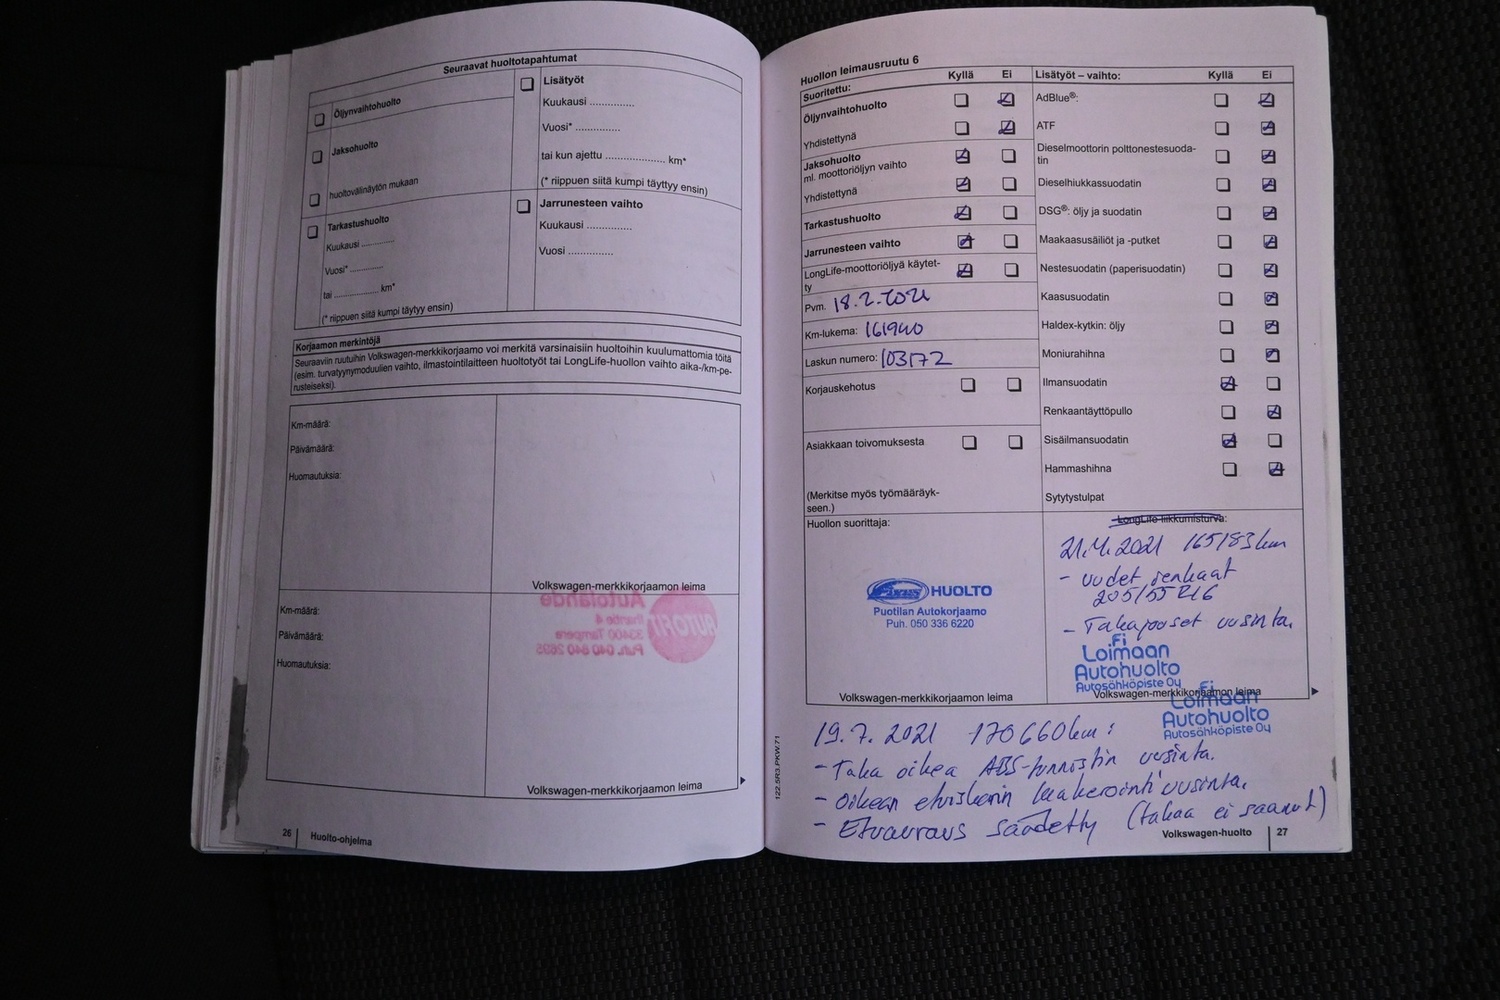 Seuraavat huoltotapahtumat
Öljynvaihtohuolto
Jaksohuolto
huoltovälinäytön mukaan
Tarkastushuolto
Kuukausi ............
Vuosi* ............
tai ................ km*
(* riippuen siitä kumpi täytyy ensin)
Lisätyöt
Kuukausi ...............
Vuosi* ...............
tai kun ajettu .................... km*
(* riippuen siitä kumpi täyttyy ensin)
Jarrunesteen vaihto
Kuukausi ...............
Vuosi ...............
Korjaamon merkintöjä
Seuraaviin ruutuihin Volkswagen-merkkikorjaamo voi merkitä varsinaisiin huoltoihin kuulumattomia töitä
(esim. turvatyynymoduulien vaihto, ilmastointilaitteen huoltotyöt tai LongLife-huollon vaihto aika-/km-pe-
rusteiseksi).
Km-määrä:
Päivämäärä:
Huomautuksia:
Volkswagen-merkkikorjaamon leima
Km-määrä:
Päivämäärä:
Huomautuksia:
Autolahde
AUTOFIT
33400 Tampere
Volkswagen-merkkikorjaamon leima
26 Huolto-ohjelma
Huollon leimausruutu 6
Suoritettu: Kyllä Ei
Öljynvaihtohuolto
Yhdistettynä
Jaksohuolto
ml. moottoriöljyn vaihto
Yhdistettynä
Tarkastushuolto
Jarrunesteen vaihto
LongLife-moottoriöljyä käytet-
ty
Pvm. 18.2.2021
Km-lukema: 161940
Laskun numero: 103172
Korjauskehotus
Asiakkaan toivomuksesta
(Merkitse myös työmääräyk-
seen.)
Lisätyöt – vaihto: Kyllä Ei
AdBlue®:
ATF
Dieselmoottorin polttonestesuoda-
tin
Dieselhiukkassuodatin
DSG®: öljy ja suodatin
Maakaasusäiliöt ja -putket
Nestesuodatin (paperisuodatin)
Kaasusuodatin
Haldex-kytkin: öljy
Moniurahihna
Ilmansuodatin
Renkaantäyttöpullo
Sisäilmansuodatin
Hammashihna
Sytytystulpat
Huollon suorittaja:
HUOLTO
Puotilan Autokorjaamo
Puh. 050 336 6220
Volkswagen-merkkikorjaamon leima
LongLife-liikkumisturva:
21.4.2021 165183km
- uudet renkaat
205/55 R16
- Takajouset uusinta.
.Fi
Loimaan
Autohuolto
Autosähköpiste Oy
Volkswagen-merkkikorjaamon leima
.Fi
Loimaan
Autohuolto
Autosähköpiste Oy
19.7.2021 170660km:
- Taka oikea ABS-tunnistin uusinta.
- Oikean etuiskarin laakerointi uusinta.
- Etuauraus säädetty (takaa ei saanut)
122.5R3.PKW.71
Volkswagen-huolto 27